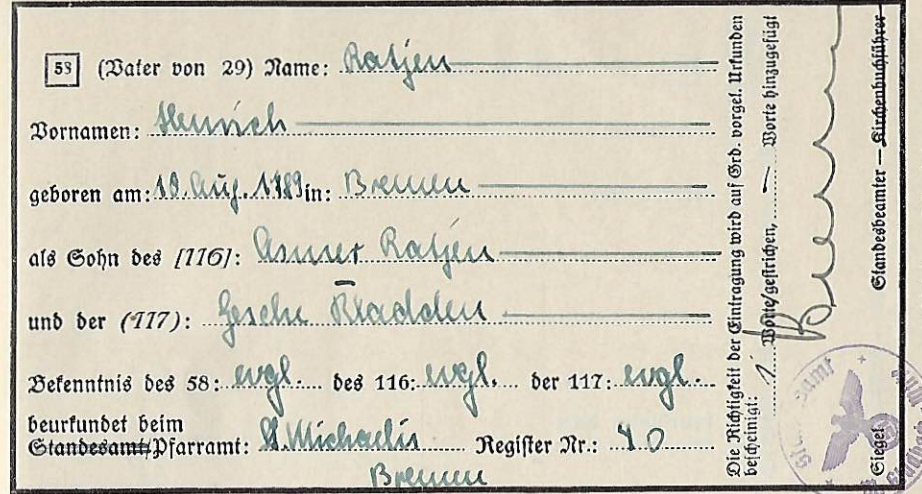 58 (Vater von 29) Name: Ratjen
Vornamen: Hinrich
geboren am: 10. Aug. 1789 in: Bremen
als Sohn des [116]: Asmer Ratjen
und der (117): Gesche Bladden
Bekenntnis des 58: evgl. des 116: evgl. der 117: evgl.
beurkundet beim
Standesamt/Pfarramt: St. Michaelis Register Nr.: 40
Bremen
Die Richtigkeit der Eintragung wird auf Grd. vorgel. Urkunden
bescheinigt: 1 Worte/gestrichen, — Worte hinzugefügt
Standesbeamter — Kirchenbuchführer
Siegel